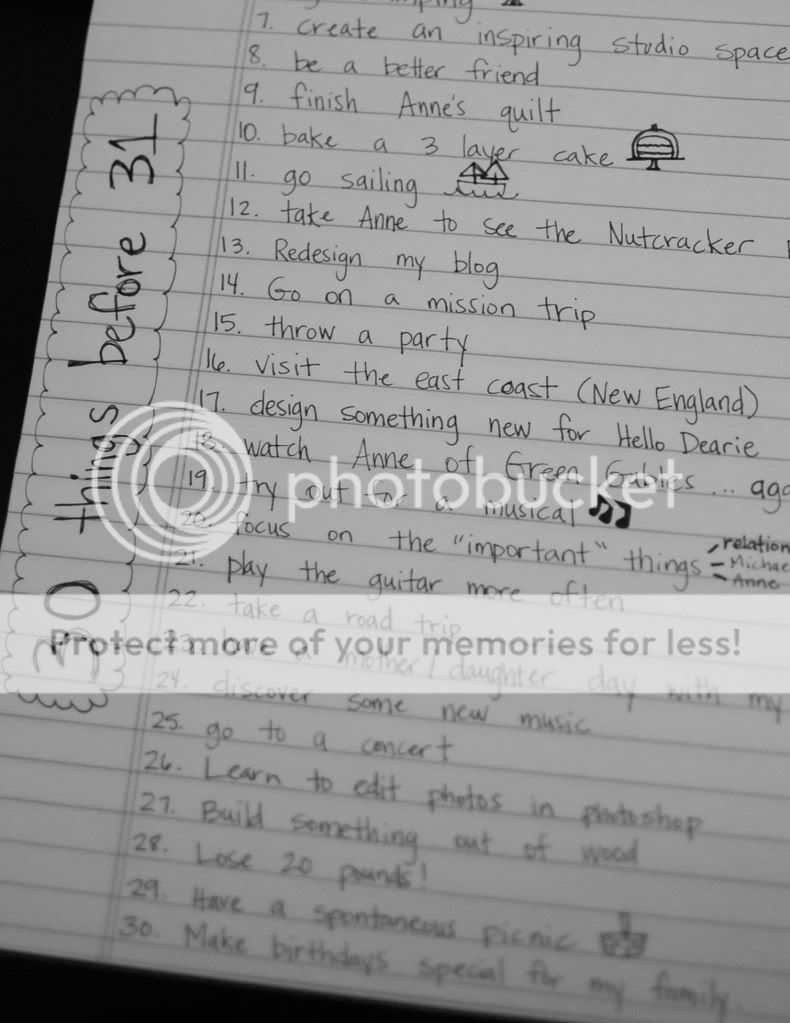 30 things before 31
7. create an inspiring studio space
8. be a better friend
9. finish Anne's quilt
10. bake a 3 layer cake
11. go sailing
12. take Anne to see the Nutcracker
13. Redesign my blog
14. Go on a mission trip
15. throw a party
16. visit the east coast (New England)
17. design something new for Hello Dearie
18. watch Anne of Green Gables ... ago
19. try out for a musical
20. focus on the "important" things
relation
Michae
Anne
21. play the guitar more often
22. take a road trip
23. a mother/daughter day with my
24. discover some new music
25. go to a concert
26. Learn to edit photos in photoshop
27. Build something out of wood
28. Lose 20 pounds!
29. Have a spontaneous picnic
30. Make birthdays special for my family
photobucket
Protect more of your memories for less!